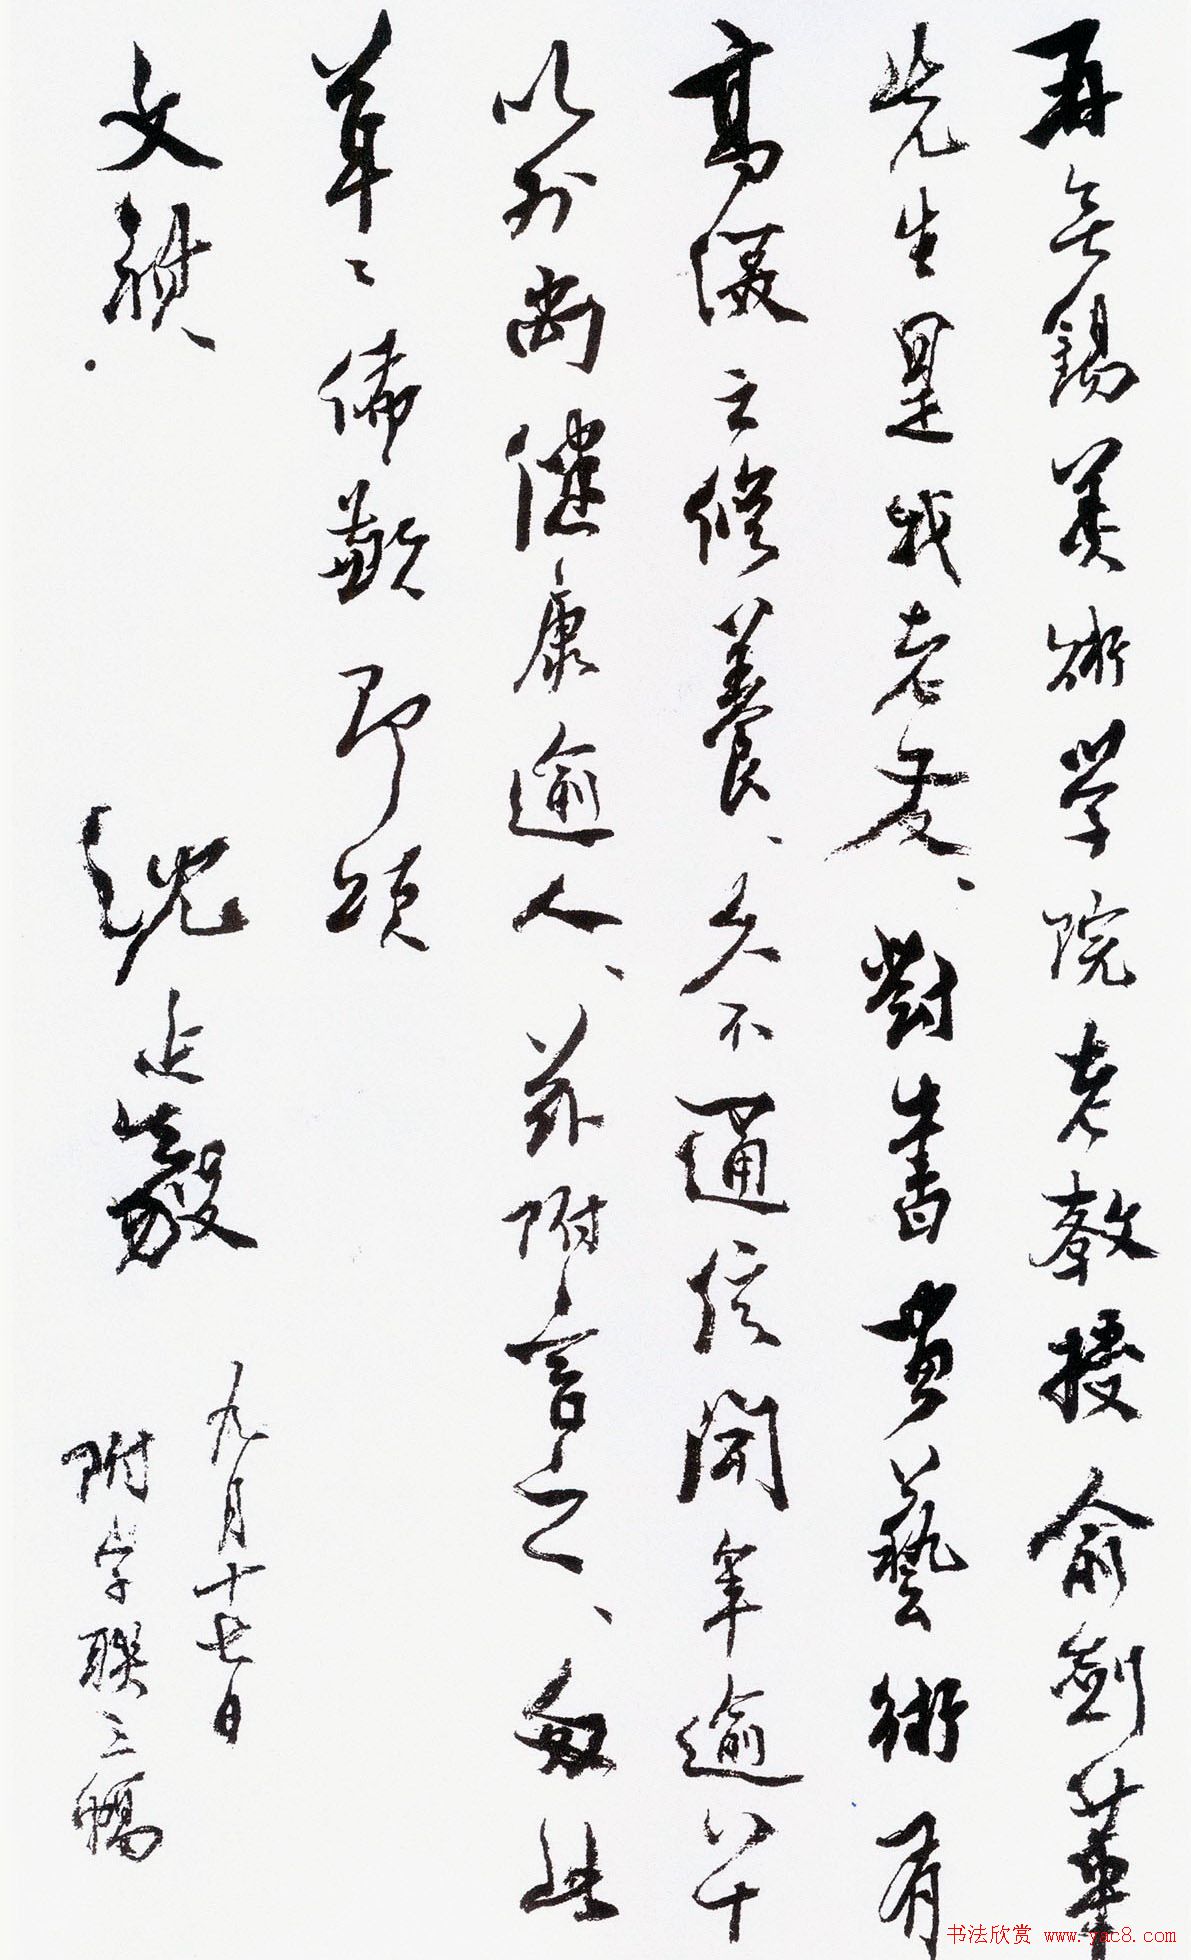 再无錫美術学院老教授俞劍華
先生是我老友、對書畫藝術有
高之修養、久不通信聞年逾八十
以外尚健康逾人、茲附言之、匆此
草〻佈歉即頌
文祺。
沈延毅
九月十七日
附字联三幅
书法欣赏 www.yac8.com